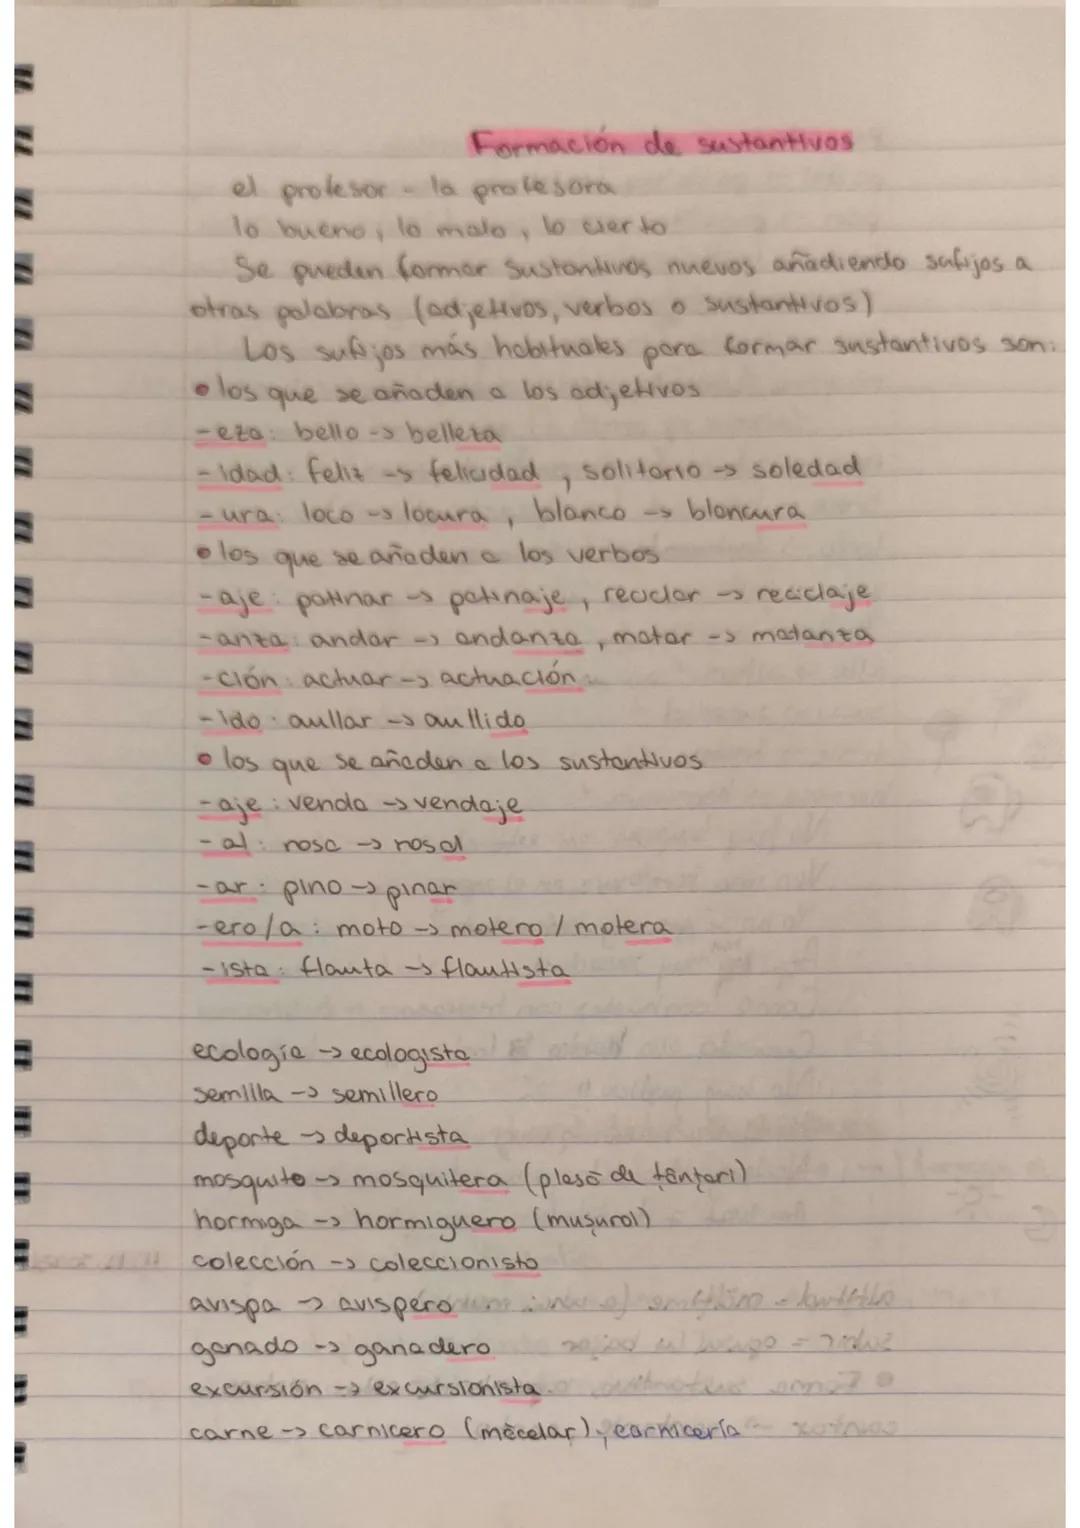 Formación de sustantivos
el profesor - la profesora
lo bueno, lo malo, lo cierto
Se pueden formar sustantivos nuevos añadiendo sufijos a
otras palabras (adjetivos, verbos o sustantivos)
Los sufijos más habituales para formar sustantivos son:
• los que se añaden a los adjetivos
-eza: bello -> belleza
-idad: feliz -> felicidad, solitario -> soledad
-ura: loco -> locura, blanco -> blancura
• los que se añaden a los verbos
-aje: patinar -> patinaje, reciclar -> reciclaje
-anza: andar -> andanza, matar -> matanza
-ción: actuar -> actuación
-ido: aullar -> aullido
• los que se añaden a los sustantivos
-aje: venda -> vendaje
-al: rosa -> rosal
-ar: pino -> pinar
-ero/a: moto -> motero / motera
-ista: flauta -> flautista
ecología -> ecologista
semilla -> semillero
deporte -> deportista
mosquito -> mosquitera (plasă de țânțari)
hormiga -> hormiguero (mușuroi)
colección -> coleccionista
avispa -> avispero
ganado -> ganadero
excursión -> excursionista
carne -> carnicero (măcelar), carnicería